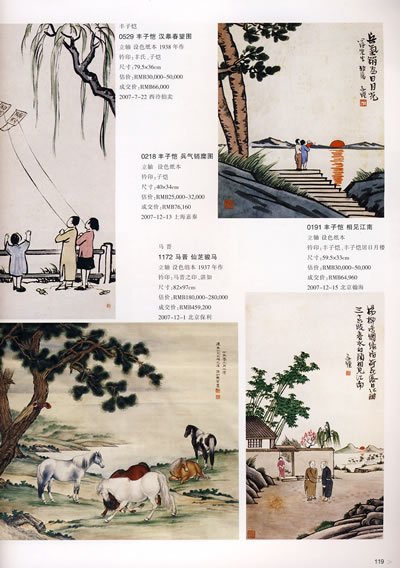 丰子恺
0529 丰子恺 汉皋春望图
立轴 设色纸本 1938 年作
钤印:丰氏、子恺
尺寸:79.5×36cm
估价:RMB30,000-50,000
成交价:RMB66,000
2007-7-22 西泠拍卖
0218 丰子恺 兵气销腐图
立轴 设色纸本
钤印:子恺
尺寸:40×34cm
估价:RMB25,000-32,000
成交价:RMB76,160
2007-12-13 上海嘉泰
0191 丰子恺 相见江南
立轴 设色纸本
钤印:丰子恺、丰子恺居日月楼
尺寸:59.5×33cm
估价:RMB30,000-50,000
成交价:RMB64,960
2007-12-15 北京翰海
马晋
1172 马晋 仙芝骏马
立轴 设色绢本 1937 年作
钤印:马晋之印、湛如
尺寸:82×97cm
估价:RMB180,000-280,000
成交价:RMB459,200
2007-12-1 北京保利
119